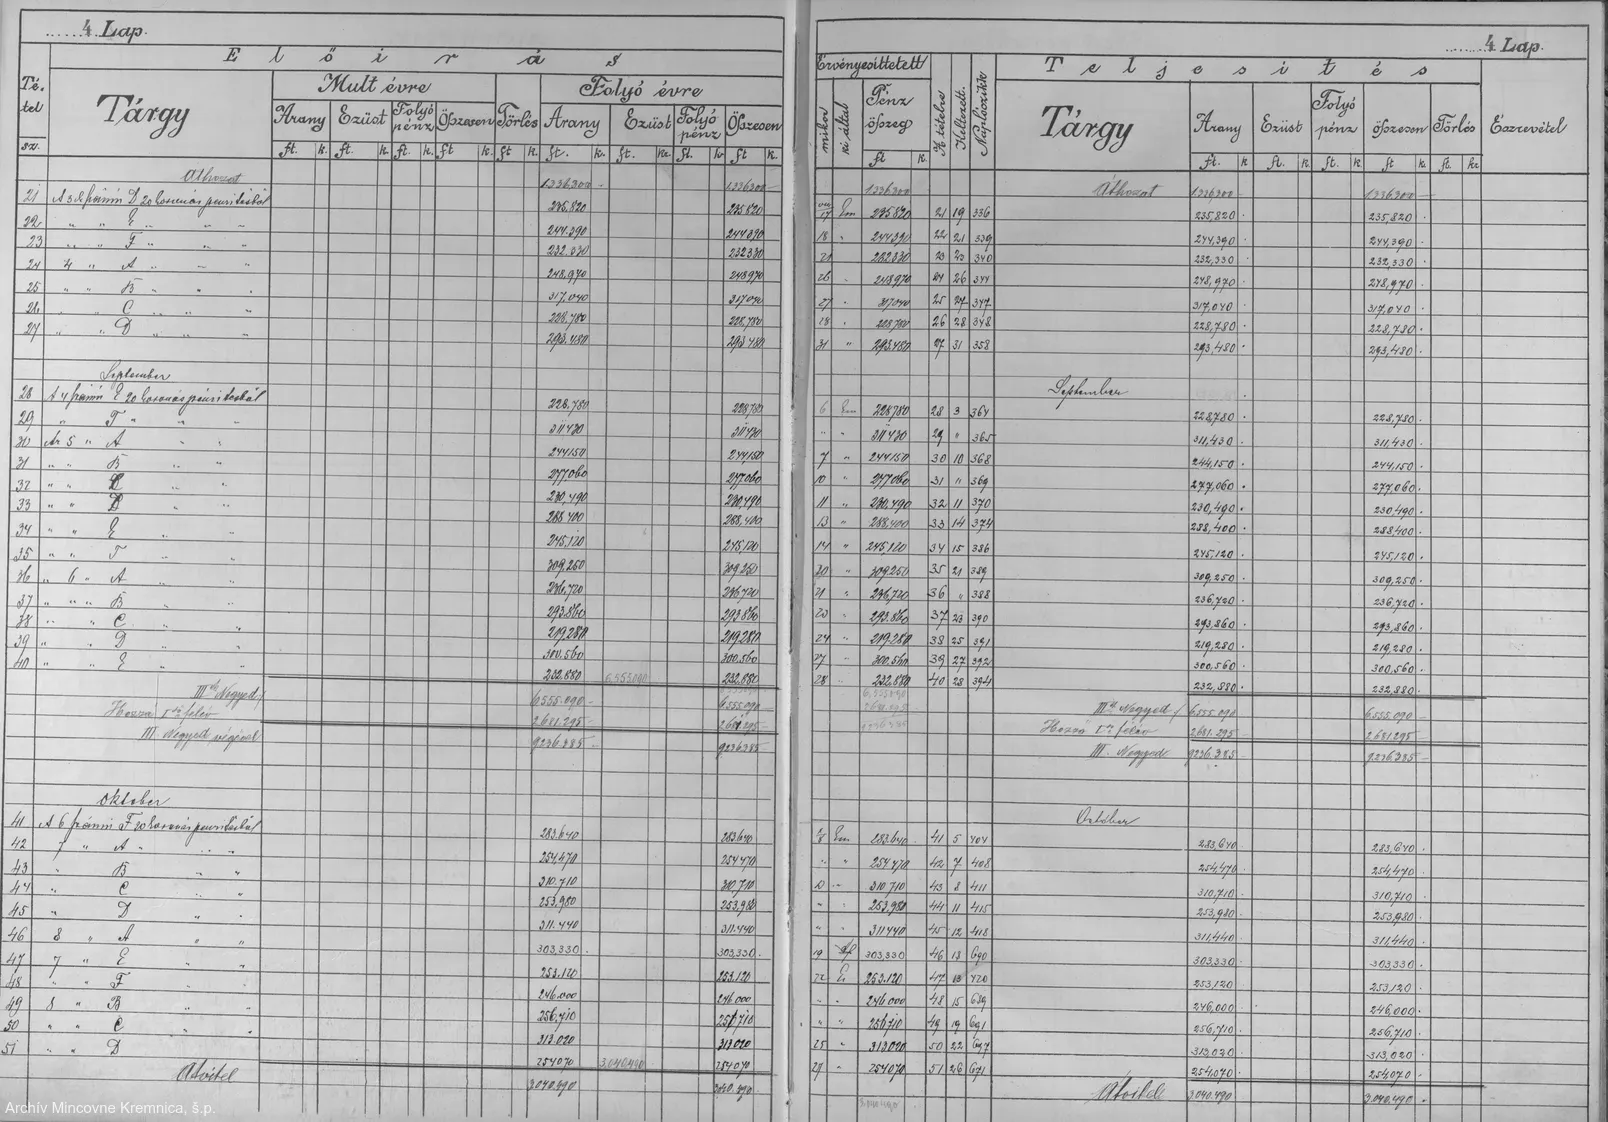 4 Lap.
Előirás
Tétel sz.
Tárgy
Mult évre
Folyó évre
Arany Ezüst Folyó pénz Összesen Törlés Arany Ezüst Folyó pénz Összesen
ft. k. ft. k. ft. k. ft k. ft k. ft. k. ft. kr. ft. kr ft k.
Áthozat 1.336.300 — 1.336.300 —
21 A 3 D 20 koronás 235.820 235.820
22 " " E " " " 244.390 244.390
23 " " F " " " 232.330 232.330
24 4 " A " " 248.970 248.970
25 " " B " " " 317.040 317.040
26 " " C " " " 228.780 228.780
27 " " D " " " 293.480 293.480
September
28 A 4 E 20 koronás 228.780 228.780
29 " F " " " 311430 311430
30 5 " A " " 244150 244,150
31 " " B " " 277060 277.060
32 " " C " " 230,490 230,490
33 " " D " " 288.400 288,400
34 " " E " " 245,120 245,120
35 " " F " " 309.250 309,250
36 " 6 " A " " 236,720 236,720
37 " " " B " " 293.860 293.860
38 " " C " " 219,280 219.280
39 " " D " " 300.560 300.560
40 " " E " " 232.880 6,555.090 232,880
III Negyed 6,555.090 — 6.555.090 —
Hozzá I félév 2,681.295 — 2.681.295 —
III Negyed végével 9236385 — 9236385 —
Oktober
41 A 6 F 20 koronás 283.640 283.640
42 7 " A " " " 254,470 254470
43 " B " " 310.710 310,710
44 " C " " 253,980 253,980
45 " D " " 311.440 311.440
46 8 " A " " 303,330 . 303,330 .
47 7 " E " " 253.120 253.120
48 " " F " " 246.000 246000
49 8 " B " " 256,710 256,710
50 " " C " " 313.020 313.020
51 " " D 254070 3,040,490 254070
Átvitel 3.040.490 3.040.490
4 Lap.
Érvényesittetett
Teljesités
mikor ki által Pénz összeg A tételre Kellezett. Naplóczikk
Tárgy
Arany Ezüst Folyó pénz összesen Törlés Észrevétel
ft k. ft. k ft. k ft. k ft k. ft. kr
1.336.300 Áthozat 1.336,300 — 1.336.300 —
VIII
17 Em 235820 21 19 336 235,820 . 235,820 .
18 " 244390 22 21 339 244,390 . 244,390 .
21 " 232.330 23 23 340 232,330 . 232,330 .
26 " 248970 24 26 344 248,970 . 248,970 .
27 " 317040 25 27 347 317,040 . 317,040 .
28 " 228,780 26 28 348 228,780 . 228,780 .
31 " 293.480 27 31 358 293,480 . 293,480 .
September
6 Em 228780 28 3 364 228780 . 228,780 .
" " 311430 29 " 365 311,430 . 311,430 .
7 " 244150 30 10 368 244,150 . 244,150 .
10 " 277060 31 " 369 277,060 . 277,060 .
11 " 230,490 32 11 370 230,490 . 230,490 .
13 " 288,400 33 14 374 288,400 . 288,400 .
14 " 245,120 34 15 386 245,120 . 245,120 .
20 " 309.250 35 21 389 309,250 . 309,250 .
21 " 236,720 36 " 388 236,720 . 236,720 .
20 " 293.860 37 23 390 293,860 . 293,860 .
24 " 219,280 38 25 391 219,280 . 219,280 .
27 " 300,560 39 27 392 300,560 . 300,560 .
28 " 232.880 40 28 394 232,880 . 232,880 .
6,555.090 III Negyed 6,555.090 — 6555.090 —
2681.295 Hozzá I félév 2,681.295 — 2.681.295 —
9236385 III. Negyed 9236.385 — 9.236.385 —
Október
8 Em 283.640 41 5 404 283,640 . 283,640 .
" " 254470 42 7 408 254,470 . 254,470 .
10 " 310,710 43 8 411 310,710 . 310,710 .
" " 253,980 44 11 415 253,980 . 253,980 .
" " 311440 45 12 418 311,440 . 311,440 .
19 303,330 46 13 690 303,330 . 303,330 .
22 253.120 47 13 420 253,120 . 253,120 .
" " 246000 48 15 689 246,000 . 246,000 .
" " 256710 49 19 691 256,710 . 256,710 .
25 " 313.020 50 22 697 313,020 . 313,020 .
27 " 254070 51 26 671 254,070 . 254,070 .
3.040.490 Átvitel 3.040.490 3.040.490 .
Archív Mincovne Kremnica, š.p.